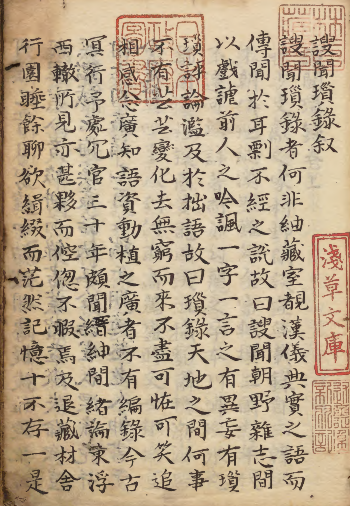 謏聞瑣錄叙
謏聞瑣錄者何非紬藏室覩漢儀典實之語而
傳聞於耳剽不經之識故曰謏聞朝野雜志間
以戲謔前人之吟諷一字一言之有異妄有瑣
瑣評論濫及於拙語故曰瑣錄天地之間何事
不有芸芸變化去無窮而來不盡可恠可笑追
相感念廣知語資動植之廣者不有編錄今古
冥行予處冗官三十年頗聞縉紳間緒論東浮
西轍所見亦甚夥而倥偬不暇焉及退藏材舍
行園睡餘聊欲緝綴而茫然記憶十不存一是
淺草文庫